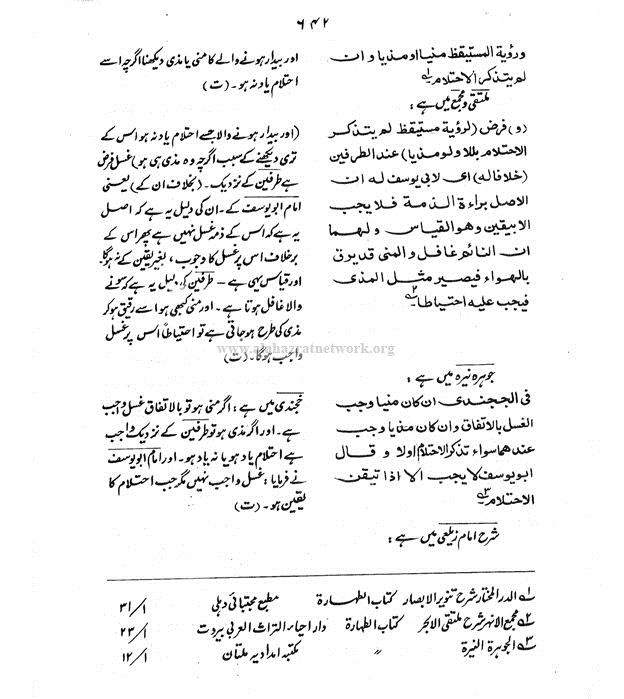 ٦٤٢
ورؤية المستيقظ منيا او مذيا و ان
لم يتذكر الاحتلام۔ؕ۱
ملتقی و مجمع میں ہے :
(و) فرض (لرؤية مستيقظ لم يتذكر
الاحتلام بللا ولو مذيا) عند الطرفين
(خلافا له) ای لابی یوسف له ان
الاصل براءة الذمة فلا يجب
الا بیقین و هو القیاس و لهما
ان النائم غافل و المنی قد یرق
بالهواء فیصیر مثل المذی
فیجب علیه احتیاطا۔۲
جوہرہ نیرہ میں ہے :
فی الخجندی ان کان منیا وجب
الغسل بالاتفاق وان کان مذیا وجب
عندهما سواء تذکر الاحتلام اولا و قال
ابو یوسف لا یجب الا اذا تیقن
الاحتلام۔۳
شرح امام زیلعی میں ہے :
اور بیدار ہونے والے کا منی یا مذی دیکھنا اگرچہ اسے
احتلام یاد نہ ہو۔ (ت)
(اور بیدار ہونے والا جسے احتلام یاد نہ ہو اس کے
تری دیکھنے کے سبب اگرچہ وہ مذی ہی ہو) غسل فرض
ہے طرفین کے نزدیک۔ (بخلاف ان کے) یعنی
امام ابو یوسف کے۔ ان کی دلیل یہ ہے کہ اصل
یہ ہے کہ اس کے ذمہ غسل نہیں ہے پھر اس کے
برخلاف اس پر غسل کا وجوب ، بغیر یقین کے نہ ہوگا۔
اور قیاس یہی ہے — طرفین کی دلیل یہ ہے کہ سونے
والا غافل ہوتا ہے۔ اور منی کبھی ہوا سے رقیق ہو کر
مذی کی طرح ہو جاتی ہے تو احتیاطاً اس پر غسل
واجب ہوگا۔ (ت)
خجندی میں ہے : اگر منی ہو تو بالاتفاق غسل واجب
ہے۔ اور اگر مذی ہو تو طرفین کے نزدیک واجب
ہے احتلام یاد ہو یا نہ یاد ہو۔ اور امام ابو یوسف
نے فرمایا : غسل واجب نہیں مگر جب احتلام کا
یقین ہو۔ (ت)
www.alahazratnetwork.org
۱ الدر المختار شرح تنویر الابصار کتاب الطہارۃ مطبع مجتبائی دہلی ۱/۳۱
۲ مجمع الانہر شرح ملتقی الابحر کتاب الطہارۃ دار احیاء التراث العربی بیروت ۱/۲۳
۳ الجوہرۃ النیرۃ " مکتبہ امدادیہ ملتان ۱/۱۲